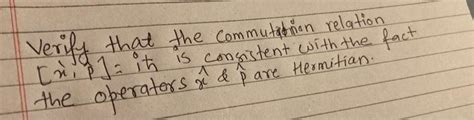 Verify that the commutation relation
[x̂, p̂] = iħ is consistent with the fact
the operators x̂ & p̂ are Hermitian.